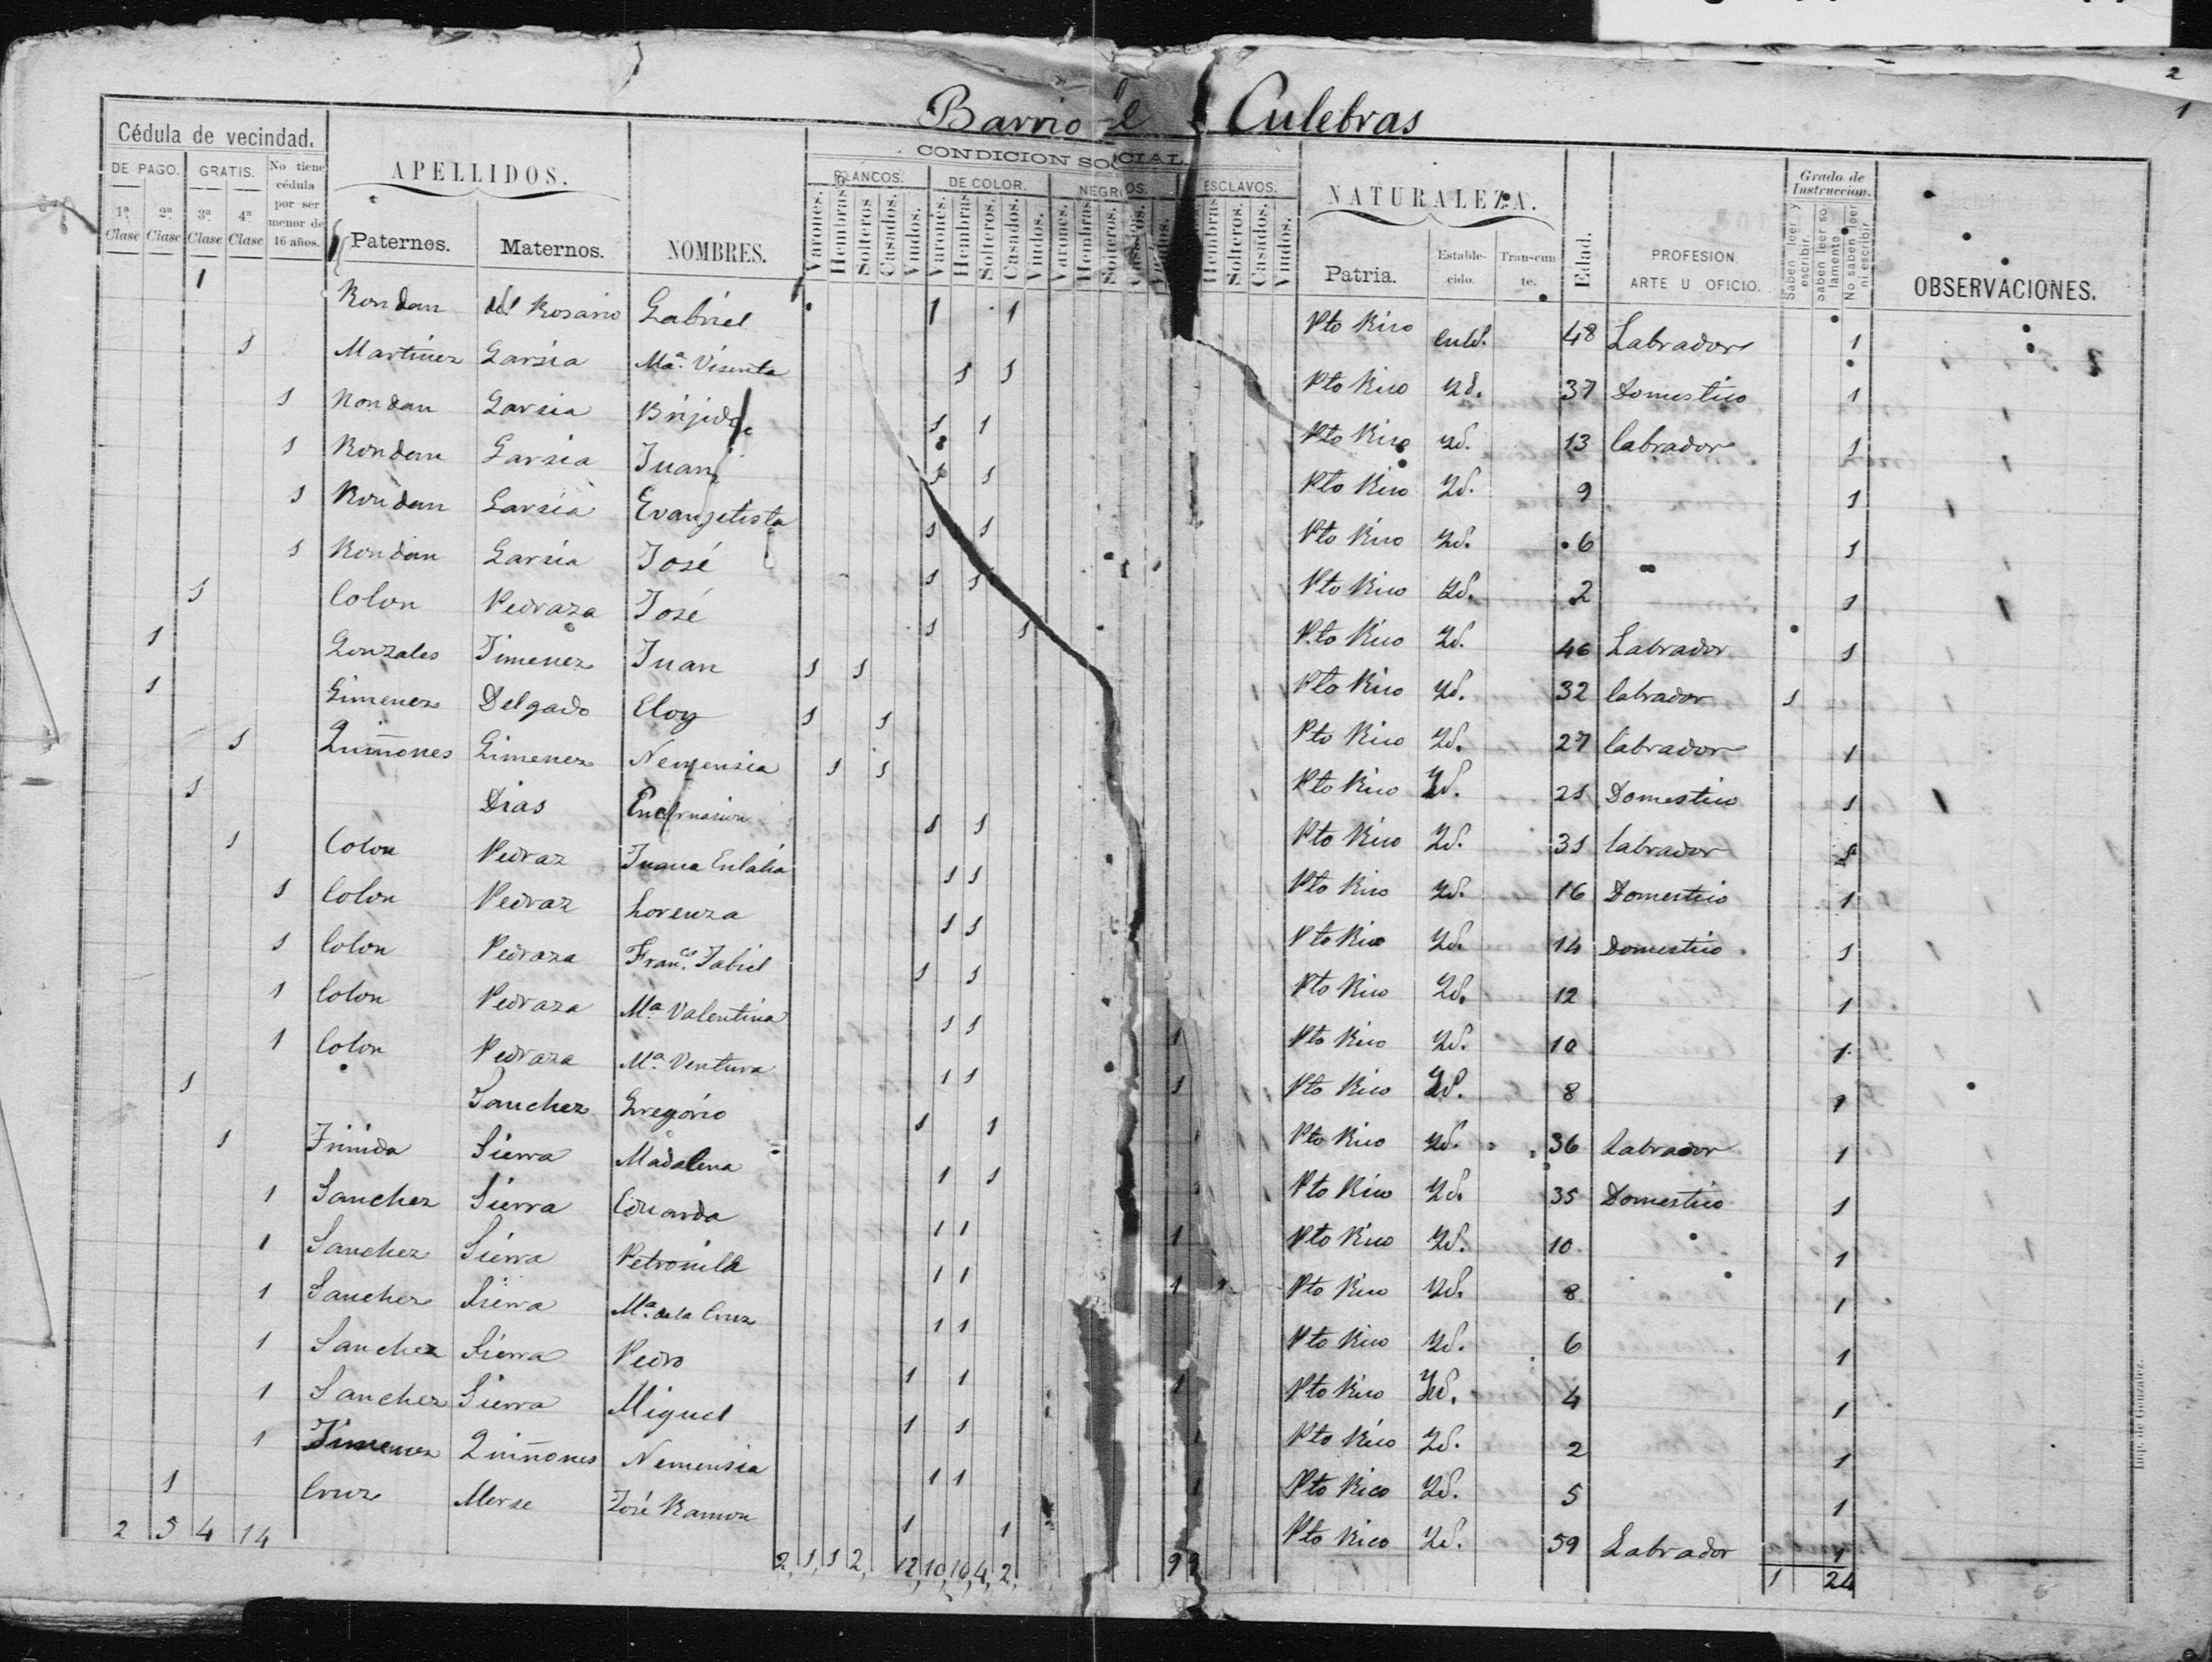 2
1
Barrio de Culebras
Cédula de vecindad.
DE PAGO. GRATIS. No tiene cédula por ser menor de 16 años.
1ª Clase 2ª Clase 3ª Clase 4ª Clase
APELLIDOS.
Paternos. Maternos.
NOMBRES.
CONDICION SOCIAL
BLANCOS. DE COLOR. NEGROS. ESCLAVOS.
Varones. Hembras. Solteros. Casados. Viudos. Varones. Hembras. Solteros. Casados. Viudos. Varones. Hembras. Solteros. Casados. Viudos. Hembras Solteros. Casados. Viudos.
NATURALEZA.
Patria. Estable-cido. Transeun-te.
Edad.
PROFESION
ARTE U OFICIO.
Grado de Instruccion.
Saben leer y escribir. Saben leer solamente. No saben leer ni escribir
OBSERVACIONES.
1 Rondan del Rosario Gabriel 1 1 Pto Rico 48 Labrador 1
1 Martinez Garsia Mª. Visenta 1 1 Pto Rico Yd. 37 Domestico 1
1 Rondan Garsia Brijido 1 1 Pto Rico Yd. 13 labrador 1
1 Rondan Garsia Juan 1 1 Pto Rico Yd. 9 1
1 Rondan Garsia Evangelista 1 1 Pto Rico Yd. 6 1
1 Rondan Garsia José 1 1 Pto Rico Yd. 2 1
1 Colon Pedraza José 1 1 Pto Rico Yd. 46 Labrador 1
1 Gonzales Jimenez Juan 1 1 Pto Rico Yd. 32 labrador 1
1 Gimenez Delgado Eloy 1 1 Pto Rico Yd. 27 labrador 1
1 Quiñones Gimenez Nemensia 1 1 Pto Rico Yd. 21 Domestico 1
1 Dias Encarnasion 1 1 Pto Rico Yd. 31 labrador 1
1 Colon Pedraz Juana Eulalia 1 1 Pto Rico Yd. 16 Domestico 1
1 Colon Pedraz Lorenza 1 1 Pto Rico Yd. 14 Domestico 1
1 Colon Pedraza Franco. Jabiel 1 1 Pto Rico Yd. 12 1
1 Colon Pedraza Mª. Valentina 1 1 1 Pto Rico Yd. 10 1
1 Colon Pedraza Mª. Ventura 1 1 1 Pto Rico Yd. 8 1
1 Sanchez Gregorio 1 1 Pto Rico Yd. 36 Labrador 1
1 Sierra Madalena 1 1 Pto Rico Yd. 35 Domestico 1
1 Sanchez Sierra Eduarda 1 1 1 Pto Rico Yd. 10 1
1 Sanchez Sierra Petronila 1 1 1 Pto Rico Yd. 8 1
1 Sanchez Sierra Mª. de la Cruz 1 1 Pto Rico Yd. 6 1
1 Sanchez Sierra Pedro 1 1 1 Pto Rico Yd. 4 1
1 Sanchez Sierra Miguel 1 1 Pto Rico Yd. 2 1
1 Jimenez Quiñones Nemensia 1 1 Pto Rico Yd. 5 1
1 Cruz Merse José Ramon 1 1 Pto Rico Yd. 59 Labrador 1
2 5 4 14 2, 1, 1 2, 12, 10, 16, 4, 2, 9 9 1 24
Imp. de Gonzalez.